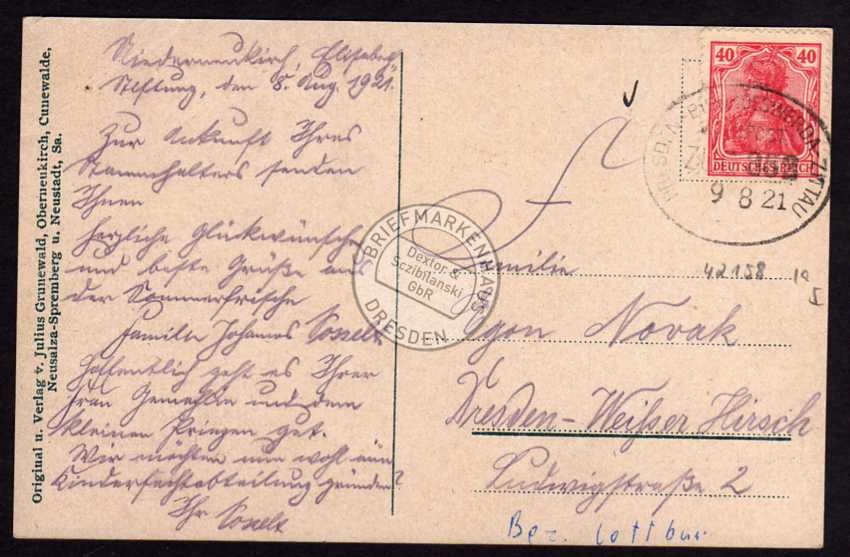 Original u. Verlag v. Julius Grunewald, Oberneukirch, Cunewalde,
Neusalza-Spremberg u. Neustadt, Sa.
Niederneukirch, Elisabeth
Stiftung, den 8. Aug. 1921.
Zur Ankunft Ihres
Stammhalters senden
Ihnen
herzliche Glückwünsche
und beste Grüße aus
der Sommerfrische
Familie Johannes
Hoffentlich geht es Ihrer
Frau Gemahlin und dem
kleinen Prinzen gut.
Wir möchten nun wohl eine
Kinderfechtabteilung gründen?
Ihr
40 40
DEUTSCHES REICH
BISCHOFSWERDA-ZITTAU
9 8 21
42158
Familie
Egon Novak
Dresden-Weißer Hirsch
Ludwigstraße 2
Bez. Cottbus
BRIEFMARKENHAUS
Dextor &
Sczibilanski
GbR
DRESDEN